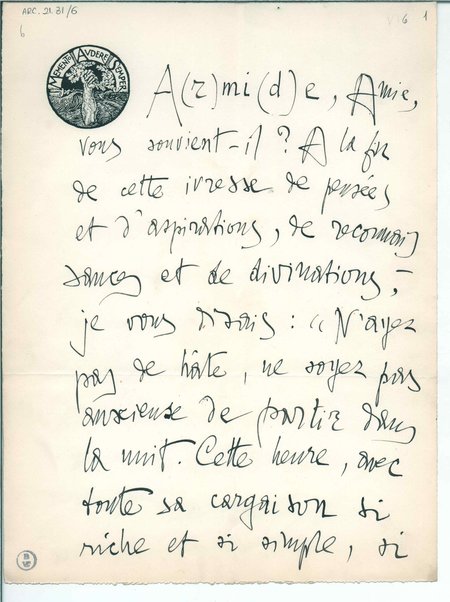 ARC. 21.31/6
6
6 1
MEMENTO AUDERE SEMPER
A(r)mi(d)e, Amie,
vous souvient-il ? A la fin
de cette ivresse de pensées
et d'aspirations, de reconnais
sances et de divinations, –
je vous disais : « N'ayez
pas de hâte, ne soyez pas
anxieuse de partir dans
la nuit. Cette heure, avec
toute sa cargaison si
riche et si simple, si